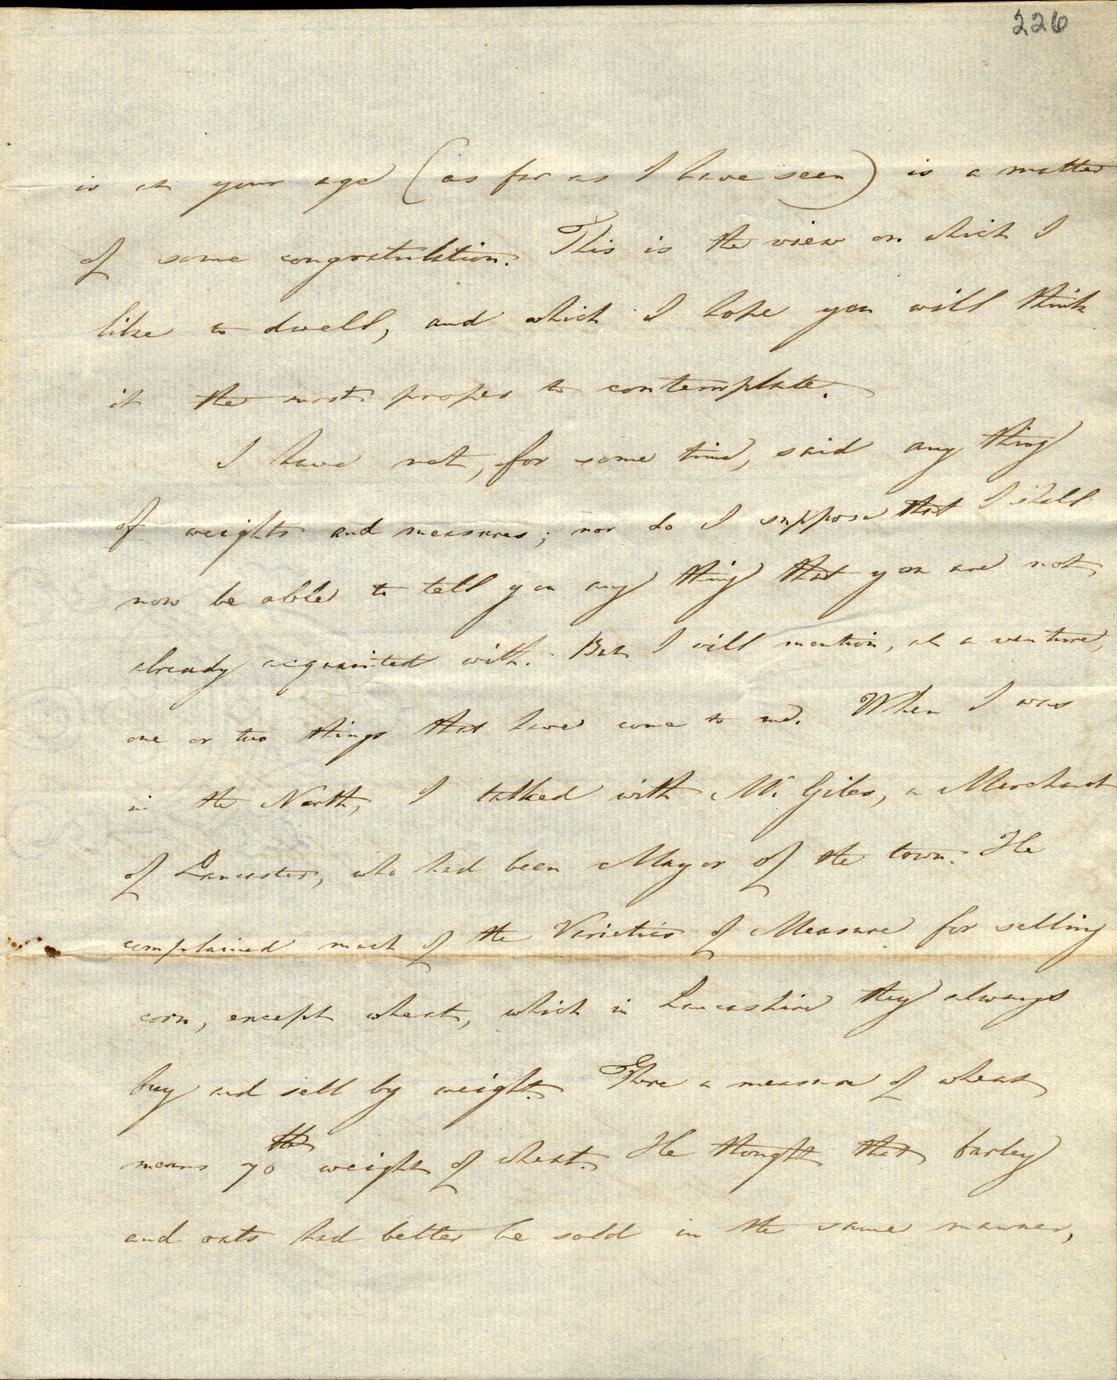 226
is at your age (as far as I have seen) is a matter
of some congratulation. This is the view on which I
like to dwell, and which I hope you will think
it the most proper to contemplate.
I have not, for some time, said any thing
of weights and measures; nor do I suppose that I shall
now be able to tell you any thing that you are not
already acquainted with. But I will mention, at a venture,
one or two things that have come to me. When I was
in the North, I talked with Mr. Giles, a Merchant
of Lancaster, who had been Mayor of the town. He
complained much of the Varieties of Measure for selling
corn, except wheat, which in Lancashire they always
buy and sell by weight. There a measure of wheat
means 70 lb weight of wheat. He thought that barley
and oats had better be sold in the same manner,